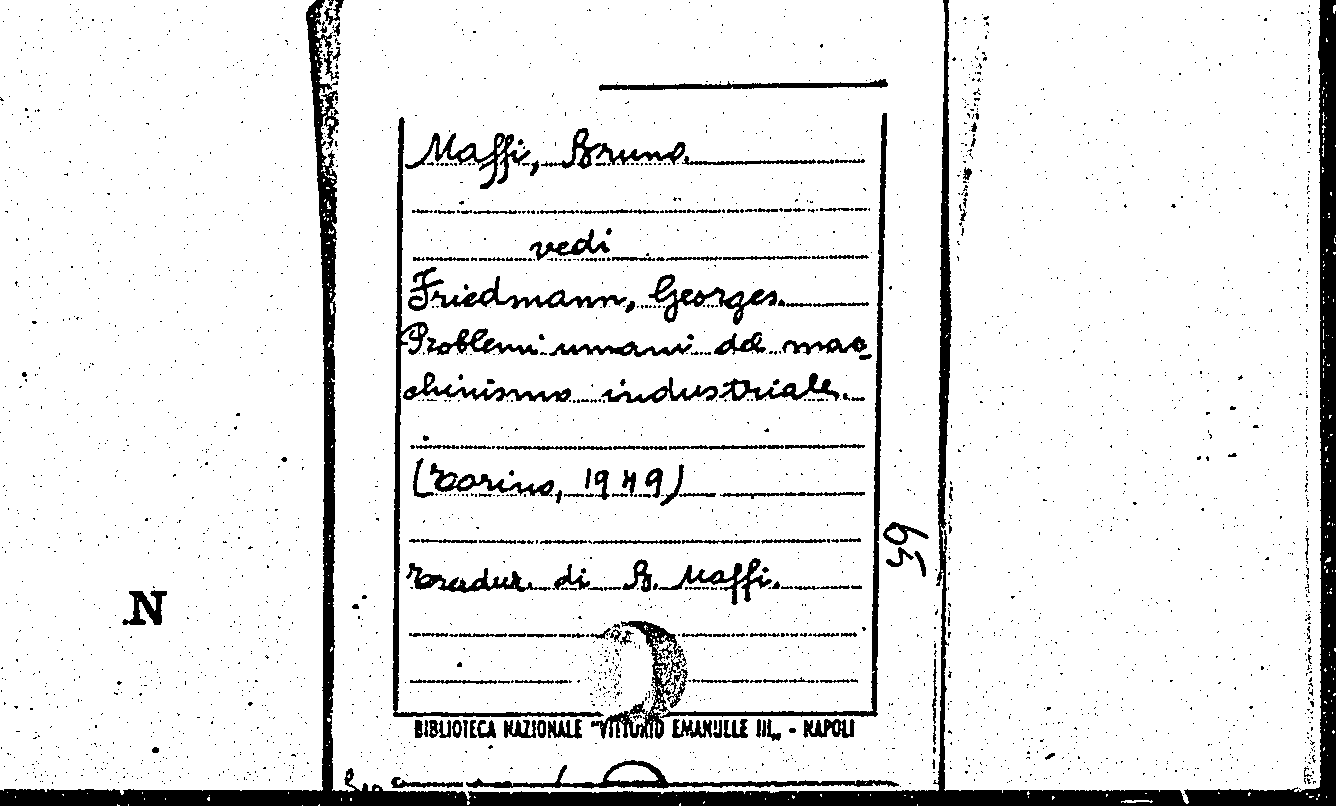 Maffi, Bruno.
vedi
Friedmann, Georges.
Problemi umani del mac-
chinismo industriale.
(Torino, 1949)
Tradur. di B. Maffi.
N
BIBLIOTECA NAZIONALE "VITTORIO EMANUELE III„ - NAPOLI